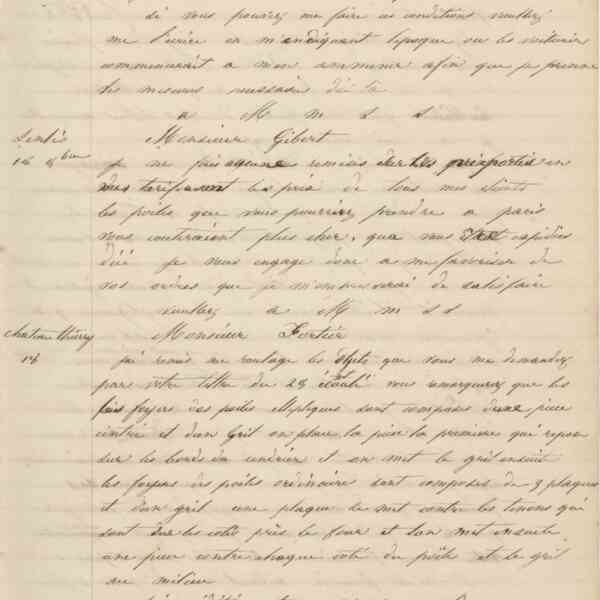 si vous pouvez me faire ces conditions veuillez
me l'écrire en m'endiquant l'epoque ou les voituriers
commencerait a mon amener afin que je prenne
les mesures nessaires
a M m s s
Senlis
Monsieur Gibert
16 8bre
je ne fais aucune remises sur les prix portés en
mes tarifs sont les prix de tous mes clients
les poiles que vous pourriez prendre a paris
vous couteraient plus cher, que vous etant expédiés
d'ici je vous engage donc a me favoriser de
vos ordres que je m'empresserai de satisfaire
veuillez a M m s s
Chateau thierry
Monsieur Fortier
16
j'ai remis au roulage les objets que vous me demandez
par votre lettre du 28 écoulé vous remarquerez que les
foyers des poiles eliptiques sont composés d'une piece
cintré et d'un Gril on place la piece la premiere qui repose
sur les bords du cendrier et on met le gril ensuite
les foyers des poiles ordinaire sont composes de 3 plaques
et d'un gril une plaque se met contre les tenons qui
sont sur les cotés près le four et l'on met ensuite
une piece contre chaque coté du poile et le gril
au milieu